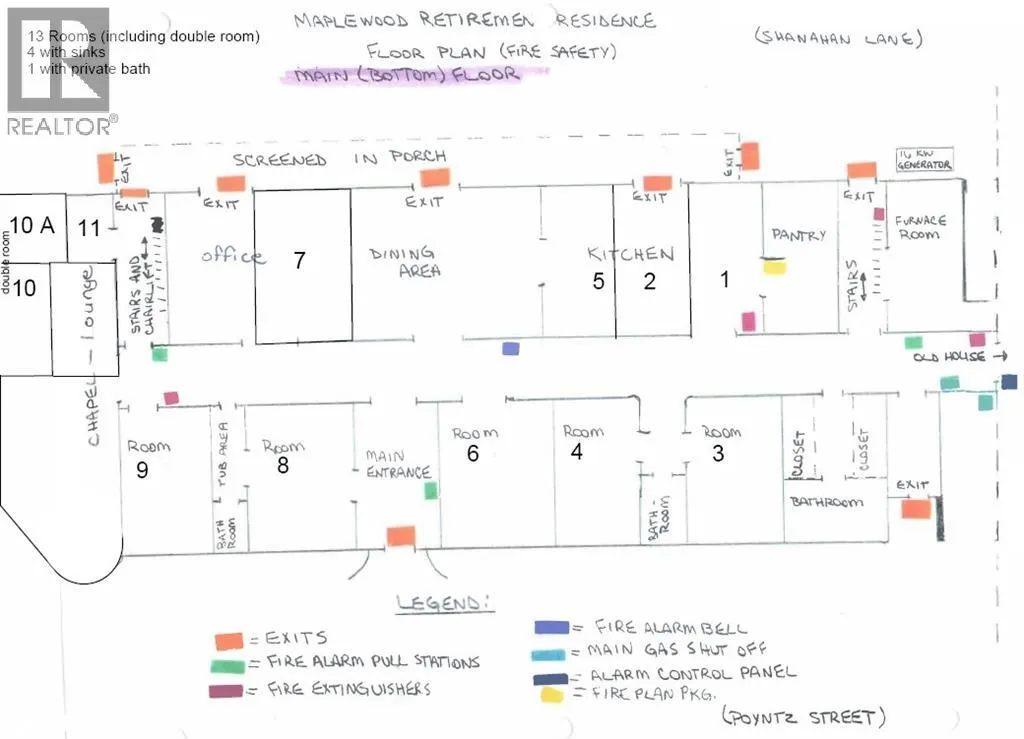 13 Rooms (including double room)
4 with sinks
1 with private bath
REALTOR®
MAPLEWOOD RETIREMEN RESIDENCE
FLOOR PLAN (FIRE SAFETY)
MAIN (BOTTOM) FLOOR
(SHANAHAN LANE)
SCREENED IN PORCH
EXIT
EXIT
16 KW
GENERATOR
EXIT
EXIT
EXIT
EXIT
EXIT
10 A
11
double room
10
STAIRS AND
CHAIRLIFT
office
7
DINING
AREA
KITCHEN
5
2
1
PANTRY
STAIRS
FURNACE
ROOM
OLD HOUSE →
CHAPEL - lounge
Room
9
TUB AREA
BATH
ROOM
Room
8
MAIN
ENTRANCE
Room
6
Room
4
BATH-
ROOM
Room
3
CLOSET
CLOSET
BATHROOM
EXIT
LEGEND:
= EXITS
= FIRE ALARM PULL STATIONS
= FIRE EXTINGUISHERS
= FIRE ALARM BELL
= MAIN GAS SHUT OFF
= ALARM CONTROL PANEL
= FIRE PLAN PKG.
(POYNTZ STREET)